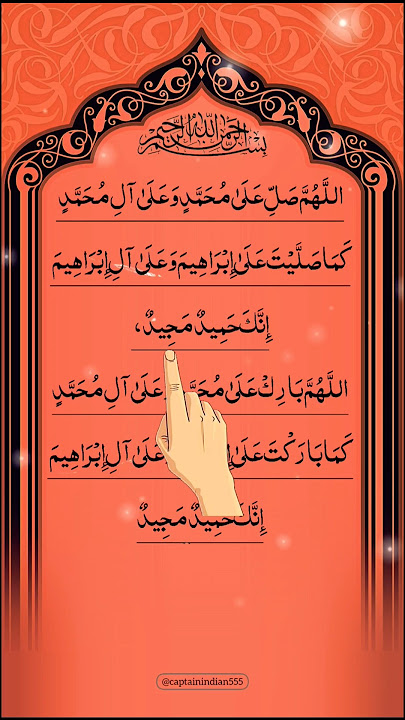 بسم الله الرحمن الرحيم
اللَّهُمَّ صَلِّ عَلَىٰ مُحَمَّدٍ وَعَلَىٰ آلِ مُحَمَّدٍ
كَمَا صَلَّيْتَ عَلَىٰ إِبْرَاهِيمَ وَعَلَىٰ آلِ إِبْرَاهِيمَ
إِنَّكَ حَمِيدٌ مَجِيدٌ،
اللَّهُمَّ بَارِكْ عَلَىٰ مُحَمَّدٍ وَعَلَىٰ آلِ مُحَمَّدٍ
كَمَا بَارَكْتَ عَلَىٰ آلِ إِبْرَاهِيمَ
إِنَّكَ حَمِيدٌ مَجِيدٌ
@captainindian555